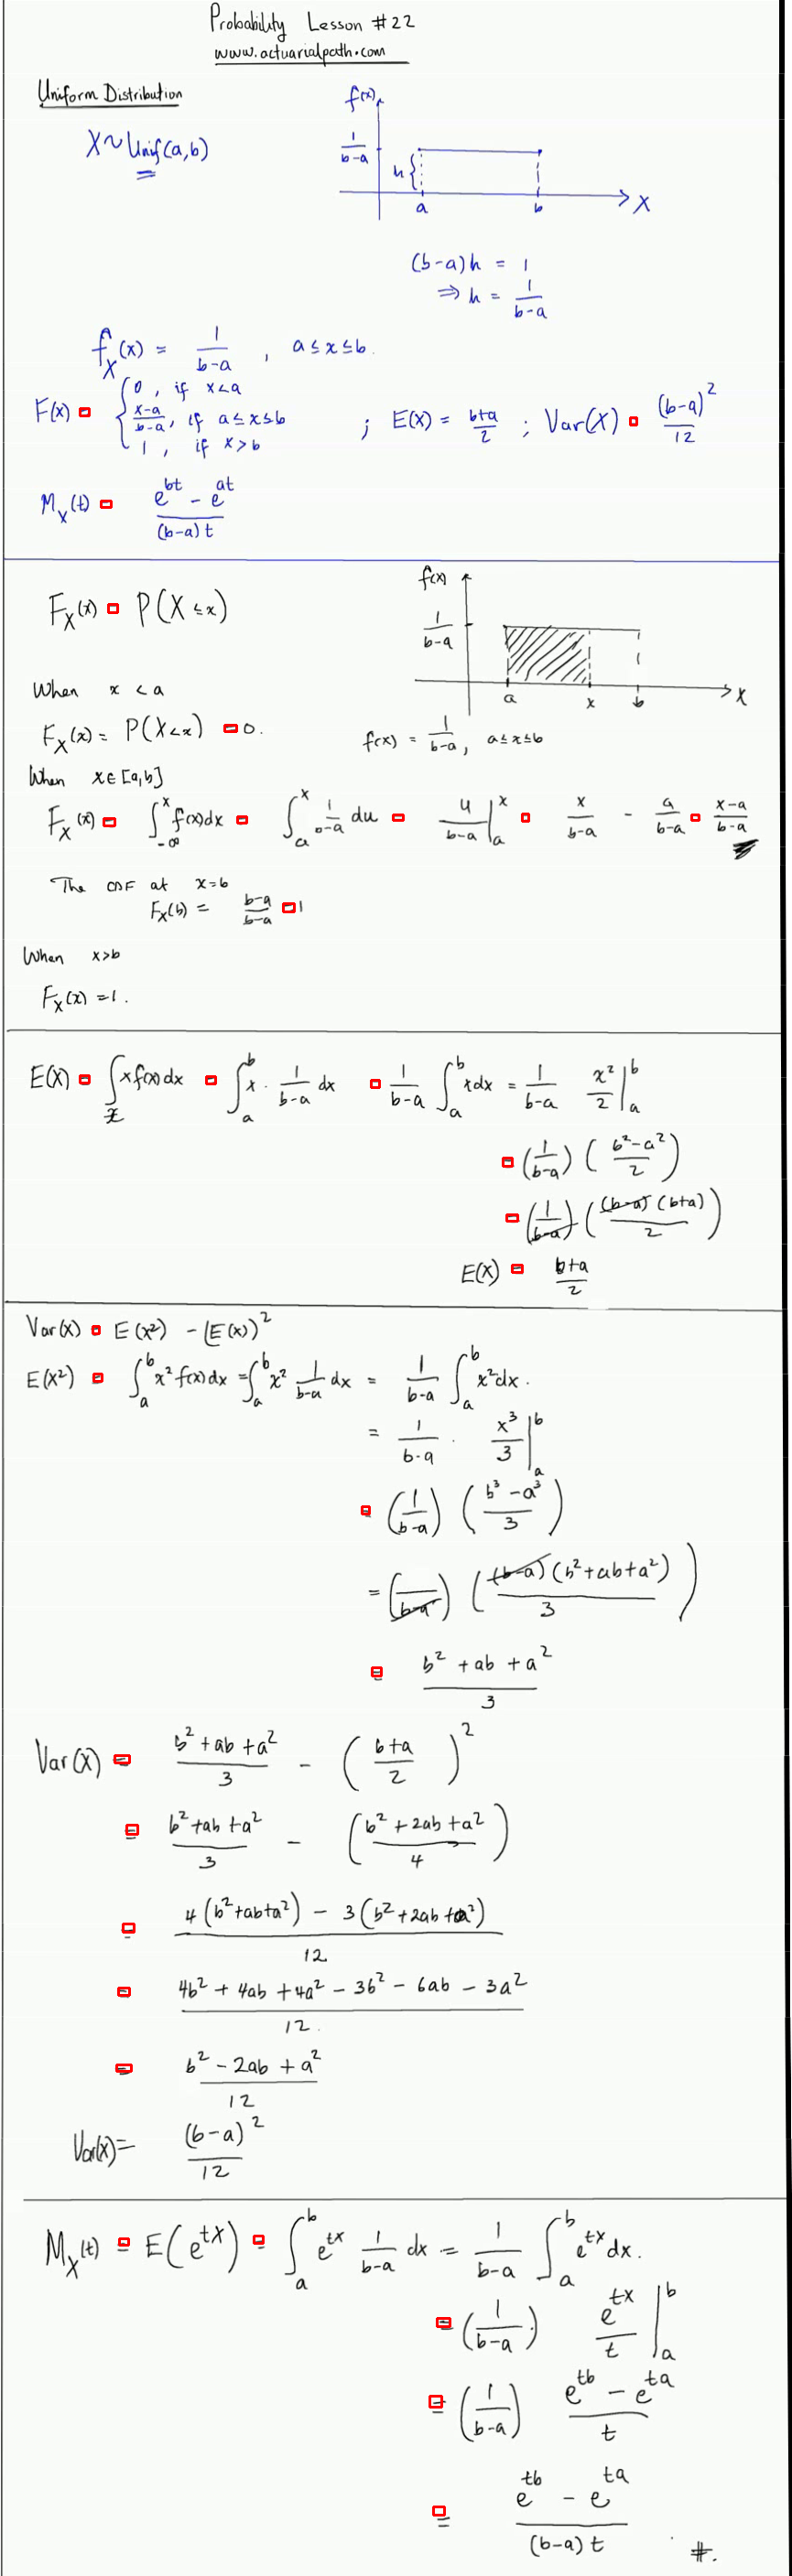 Probability Lesson #22
www.actuarialpath.com
Uniform Distribution
X ~ Unif(a,b)
f(x)
1/(b-a)
h{
a b X
(b-a)h = 1
⇒ h = 1/(b-a)
f_X(x) = 1/(b-a) , a ≤ x ≤ b.
F(x) = { 0, if x<a
(x-a)/(b-a), if a≤x≤b
1, if x>b
; E(X) = (b+a)/2 ; Var(X) = (b-a)^2/12
M_X(t) = (e^{bt} - e^{at})/((b-a)t)
F_X(x) = P(X ≤ x)
f(x)
1/(b-a)
a x b X
f(x) = 1/(b-a), a≤x≤b
When x < a
F_X(x) = P(X<x) = 0.
When x∈[a,b]
F_X(x) = ∫_{-∞}^{x} f(x)dx = ∫_a^x 1/(b-a) du = u/(b-a) |_a^x = x/(b-a) - a/(b-a) = (x-a)/(b-a)
The CDF at x=b
F_X(b) = (b-a)/(b-a) = 1
When x>b
F_X(x) = 1.
E(X) = ∫_x x f(x) dx = ∫_a^b x · 1/(b-a) dx = 1/(b-a) ∫_a^b x dx = 1/(b-a) x^2/2 |_a^b
= (1/(b-a)) ((b^2-a^2)/2)
= (1/(b-a)) ((b-a)(b+a)/2)
E(X) = (b+a)/2
Var(X) = E(X^2) - (E(X))^2
E(X^2) = ∫_a^b x^2 f(x) dx = ∫_a^b x^2 1/(b-a) dx = 1/(b-a) ∫_a^b x^2 dx.
= 1/(b-a) · x^3/3 |_a^b
= (1/(b-a)) ((b^3-a^3)/3)
= (1/(b-a)) ((b-a)(b^2+ab+a^2)/3)
= (b^2+ab+a^2)/3
Var(X) = (b^2+ab+a^2)/3 - ((b+a)/2)^2
= (b^2+ab+a^2)/3 - ((b^2+2ab+a^2)/4)
= (4(b^2+ab+a^2) - 3(b^2+2ab+a^2))/12
= (4b^2+4ab+4a^2-3b^2-6ab-3a^2)/12.
= (b^2-2ab+a^2)/12
Var(x) = (b-a)^2/12
M_X(t) = E(e^{tX}) = ∫_a^b e^{tx} 1/(b-a) dx = 1/(b-a) ∫_a^b e^{tx} dx.
= (1/(b-a)) e^{tx}/t |_a^b
= (1/(b-a)) (e^{tb} - e^{ta})/t
= (e^{tb} - e^{ta})/((b-a)t) #.